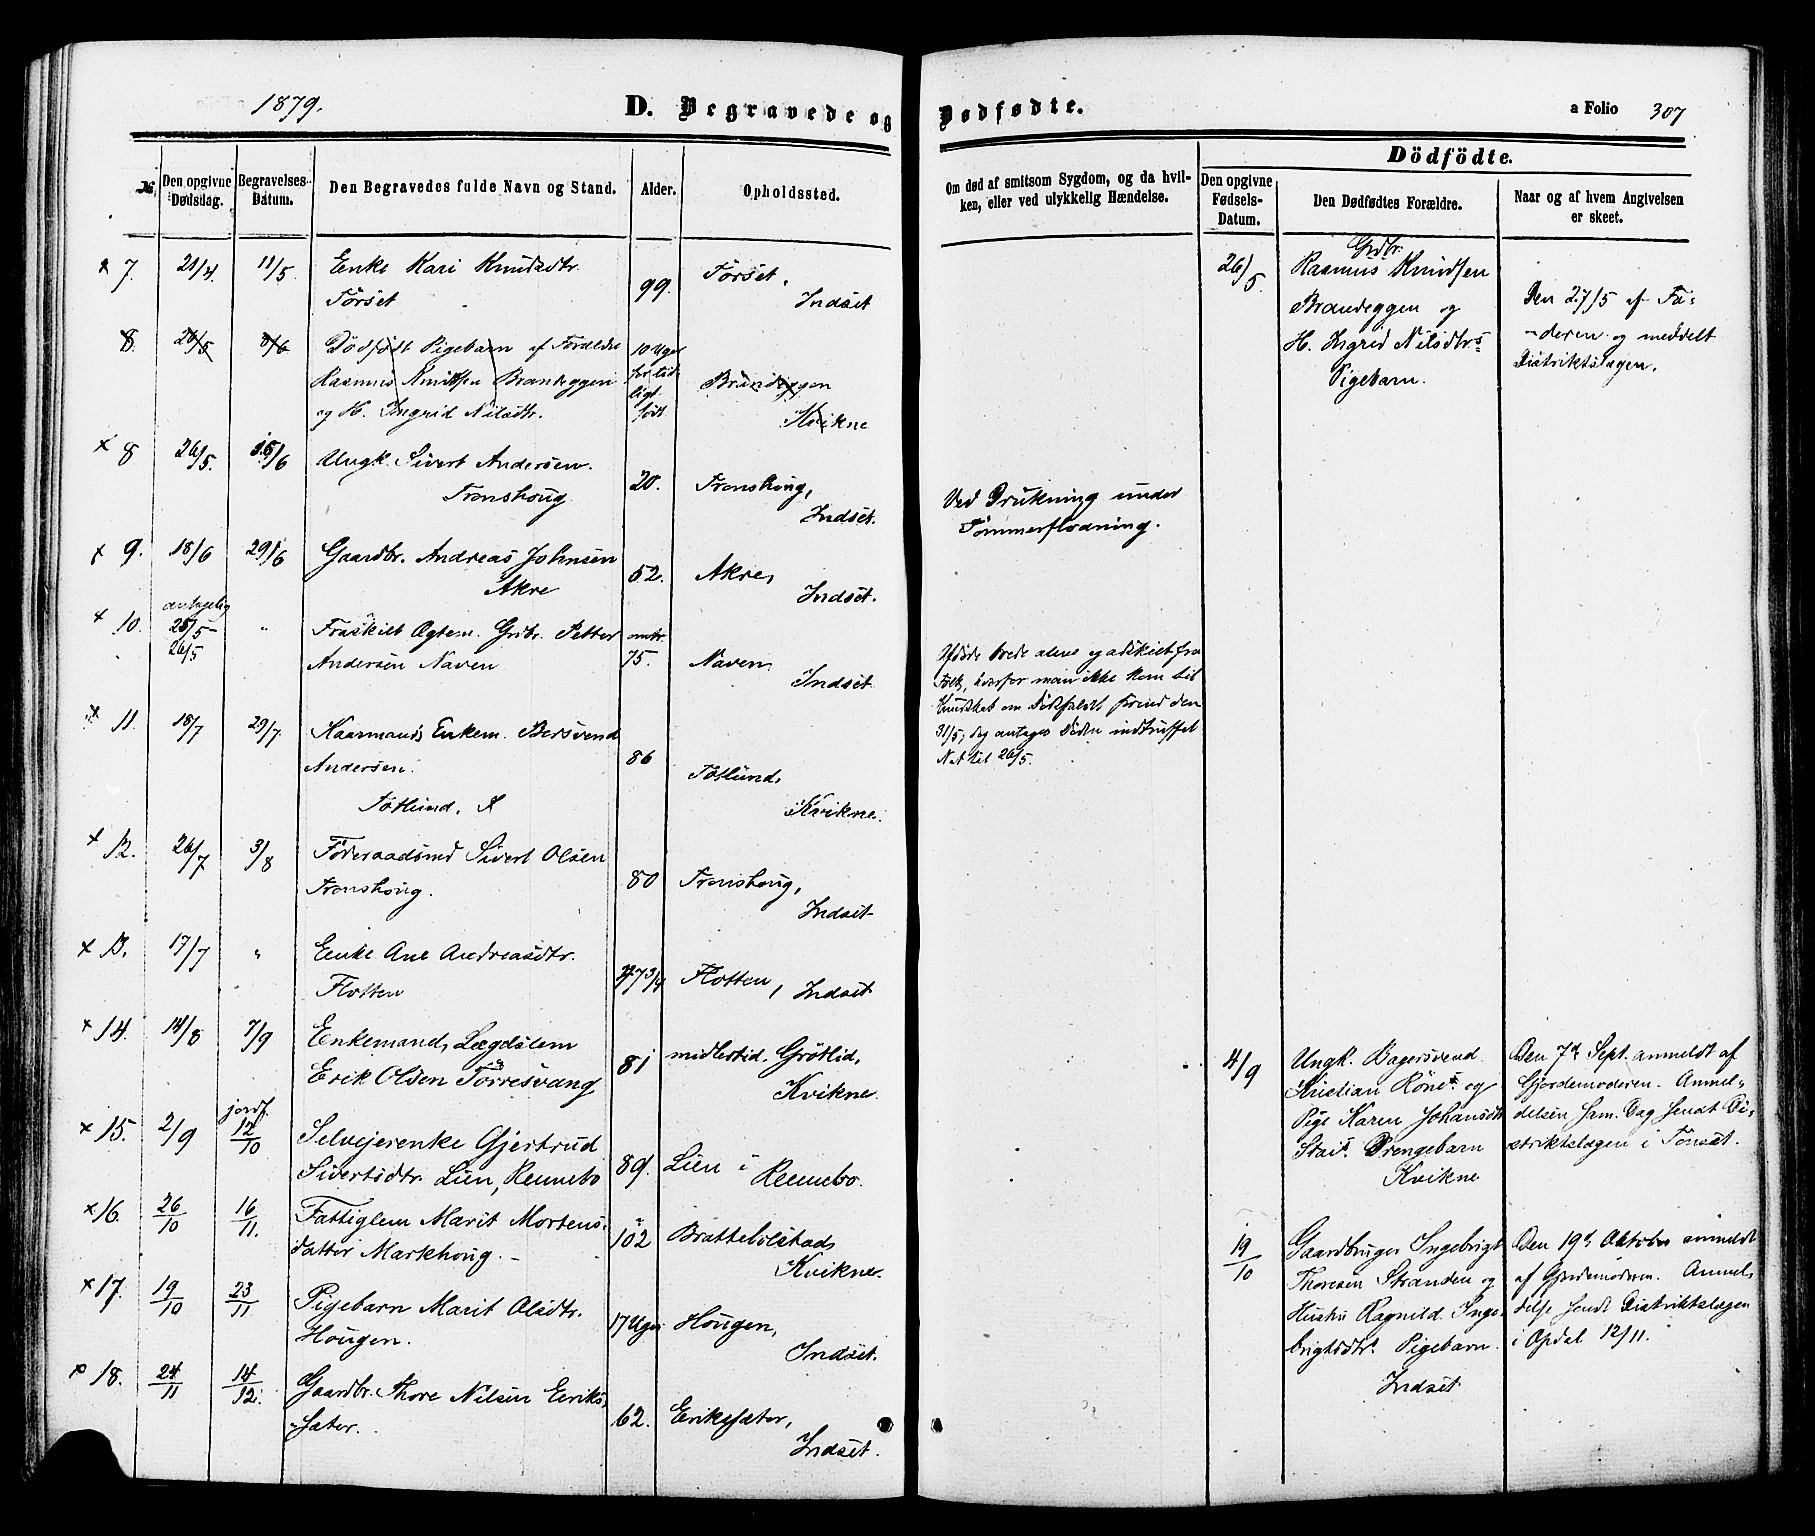 1879.
D. Begravede og Dødfødte.
a Folio 307
№
Den opgivne Dødsdag.
Begravelses-Datum.
Den Begravedes fulde Navn og Stand.
Alder.
Opholdssted.
Om død af smitsom Sygdom, og da hvil-
ken, eller ved ulykkelig Hændelse.
Dödfödte.
Den opgivne Fødsels-Datum.
Den Dødfødtes Forældre.
Naar og af hvem Angivelsen er skeet.
x 7. 21/4. 11/5 Enke Kari Knudsdtr.
Törset 99. Törset, Indset
8. 26/5 8/6 Dödfödt Pigebarn af Foreldre
Rasmus Knudsen Brandeggen
og H. Ingrid Nilsdtr.
10 Uger
for tid-
ligt
födt
Brandeggen
Kvikne
x 8 26/5. 15/6 Ungk. Sivert Andersen.
Tronshoug 20. Tronshoug,
Indset.
Ved Drukning under
Tömmerflødning.
x 9. 18/6 29/6 Gaardbr. Andreas Johnsen
Akre 52. Akre,
Indset.
antagelig
x 10. 25/5- 26/5 " Fraskilt Ægtem. Grdbr. Petter
Andersen Naven
omtr. 75. Naven
Indset
Afdøde boede alene og adskilt fra
Folk, hvorfor man ikke kom til
Kundskab om Dödsfaldet förend den
31/5, dog antages Döden indtruffet
Nat til 26/5.
x 11. 18/7 29/7. Kaarmands Enkem. Bersvend
Andersen.
Tötlund. 86 Tötlund,
Kvikne.
x 12. 26/7 3/8 Föderaadsmd Sivert Olsen
Tronshoug. 80 Tronshoug,
Indset
x 13. 17/7 " Enke Ane Andreasdtr.
Flotten 73/4 Flotten, Indset
x 14. 14/8 7/9 Enkemand, Lægdslem
Erik Olsen Torresvang 81 midlertid. Grötlid,
Kvikne.
x 15. 2/9 jordf. 12/10 Selvejerenke Gjertrud
Sivertsdtr. Lien, Rennebo 89. Lien i
Rennebo.
x 16. 26/10 16/11. Fattiglem Marit Mortens-
datter Markhoug. 102 Brattebolstad
Kvikne.
x 17. 19/10 23/11 Pigebarn Marit Olsdtr.
Hougen. 17 Uger Hougen,
Indset.
x 18. 24/11 14/12. Gaardbr. Thore Nilsen Eeriks-
sæter. 62. Erikssæter,
Indset.
26/5. Grdbr.
Rasmus Knudsen
Brandeggen og
H. Ingrid Nilsdtrs
Pigebarn.
Den 27/5 af Fa-
deren og meddelt
Distriktslægen.
4/9 Ungk. Bagersvend
Kristian Röne og
Pige Karen Johansdtr
Stai. Drengebarn
Kvikne
Den 7de Sept. anmeldt af
Gjordemoderen. Anmel-
delsen s.m. Dag sendt Di-
striktslægen i Tönset.
19/10 Gaardbruger Ingebrigt
Thoresen Stranden og
Hustru Ragnild Inge-
brigtsdtr. Pigebarn.
Indset
Den 19de Oktober anmeldt
af Gjordemoderen. Anmel-
delse sendt Distriktslægen
i Opdal 12/11.